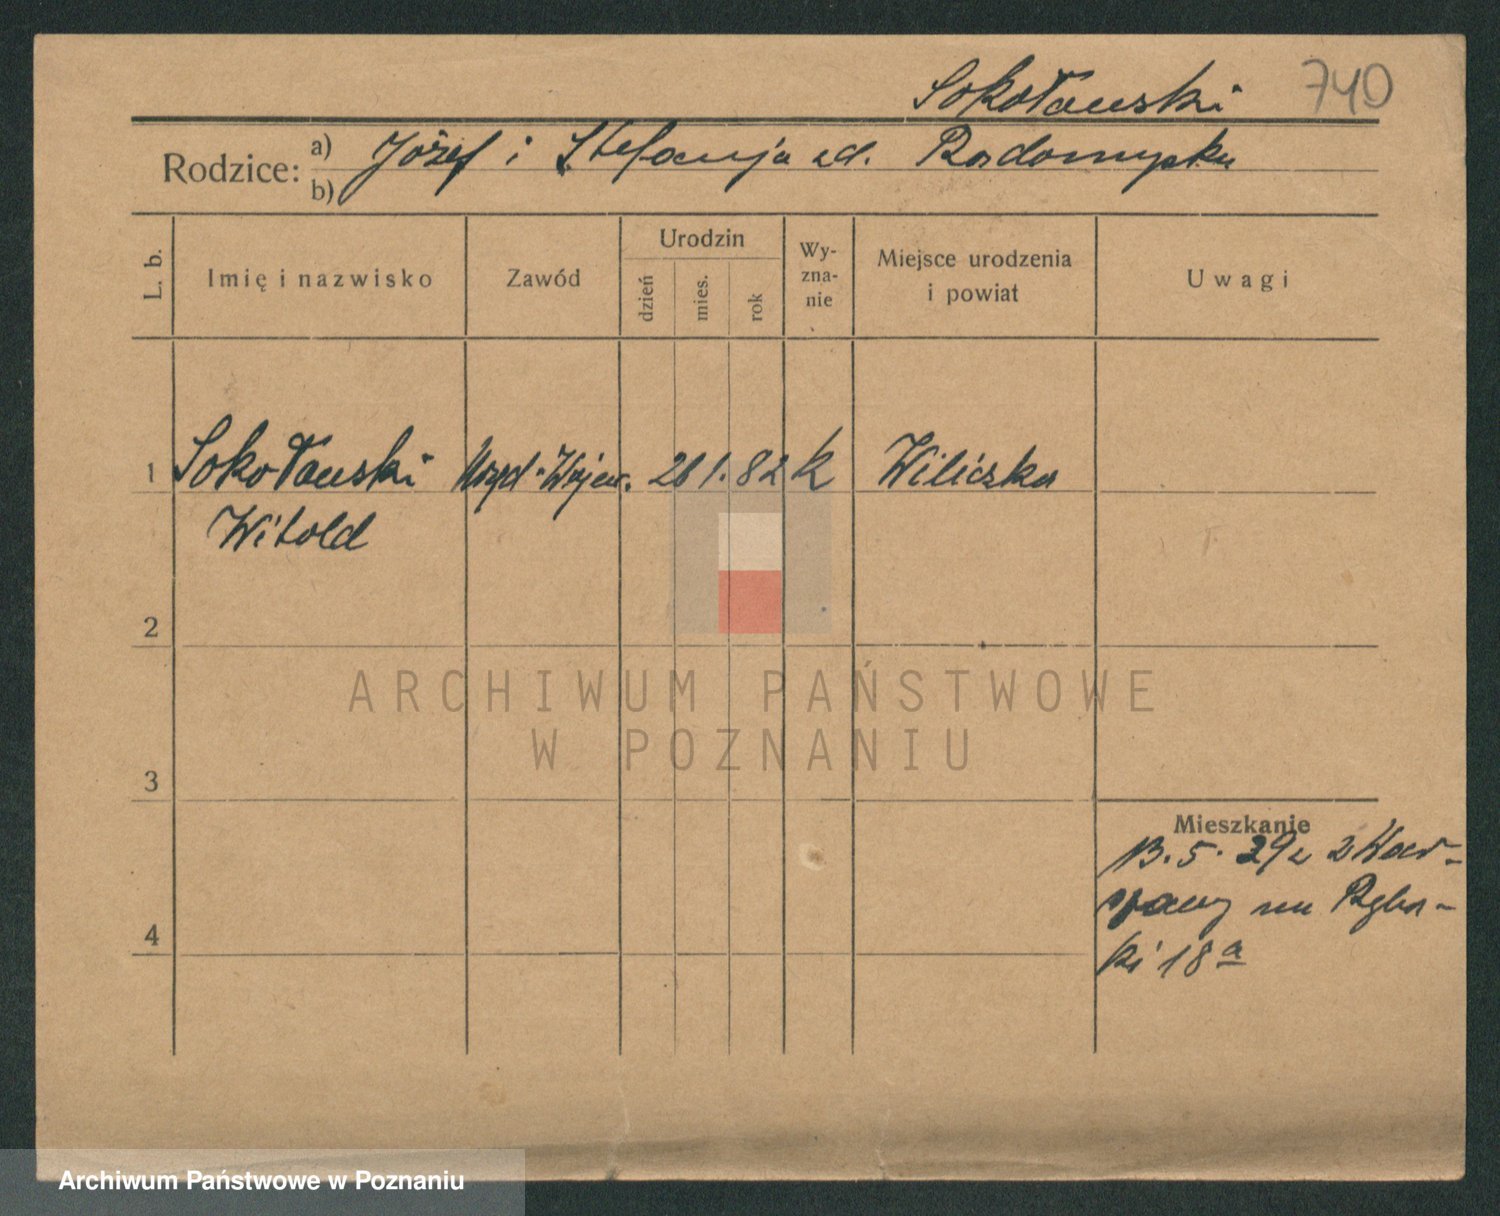 Sokołowski 740
Rodzice: a) Józef i Stefanja zd. Radomyska
b)
L. b. Imię i nazwisko Zawód Urodzin dzień mies. rok Wy-zna-nie Miejsce urodzenia i powiat Uwagi
1 Sokołowski Urzęd. Wojew. 26 1. 82 k Wiliczka
Witold
2
3
Mieszkanie
13. 5. 29 z War-
szawy na
4
ki 18a
ARCHIWUM PAŃSTWOWE
W POZNANIU
Archiwum Państwowe w Poznaniu